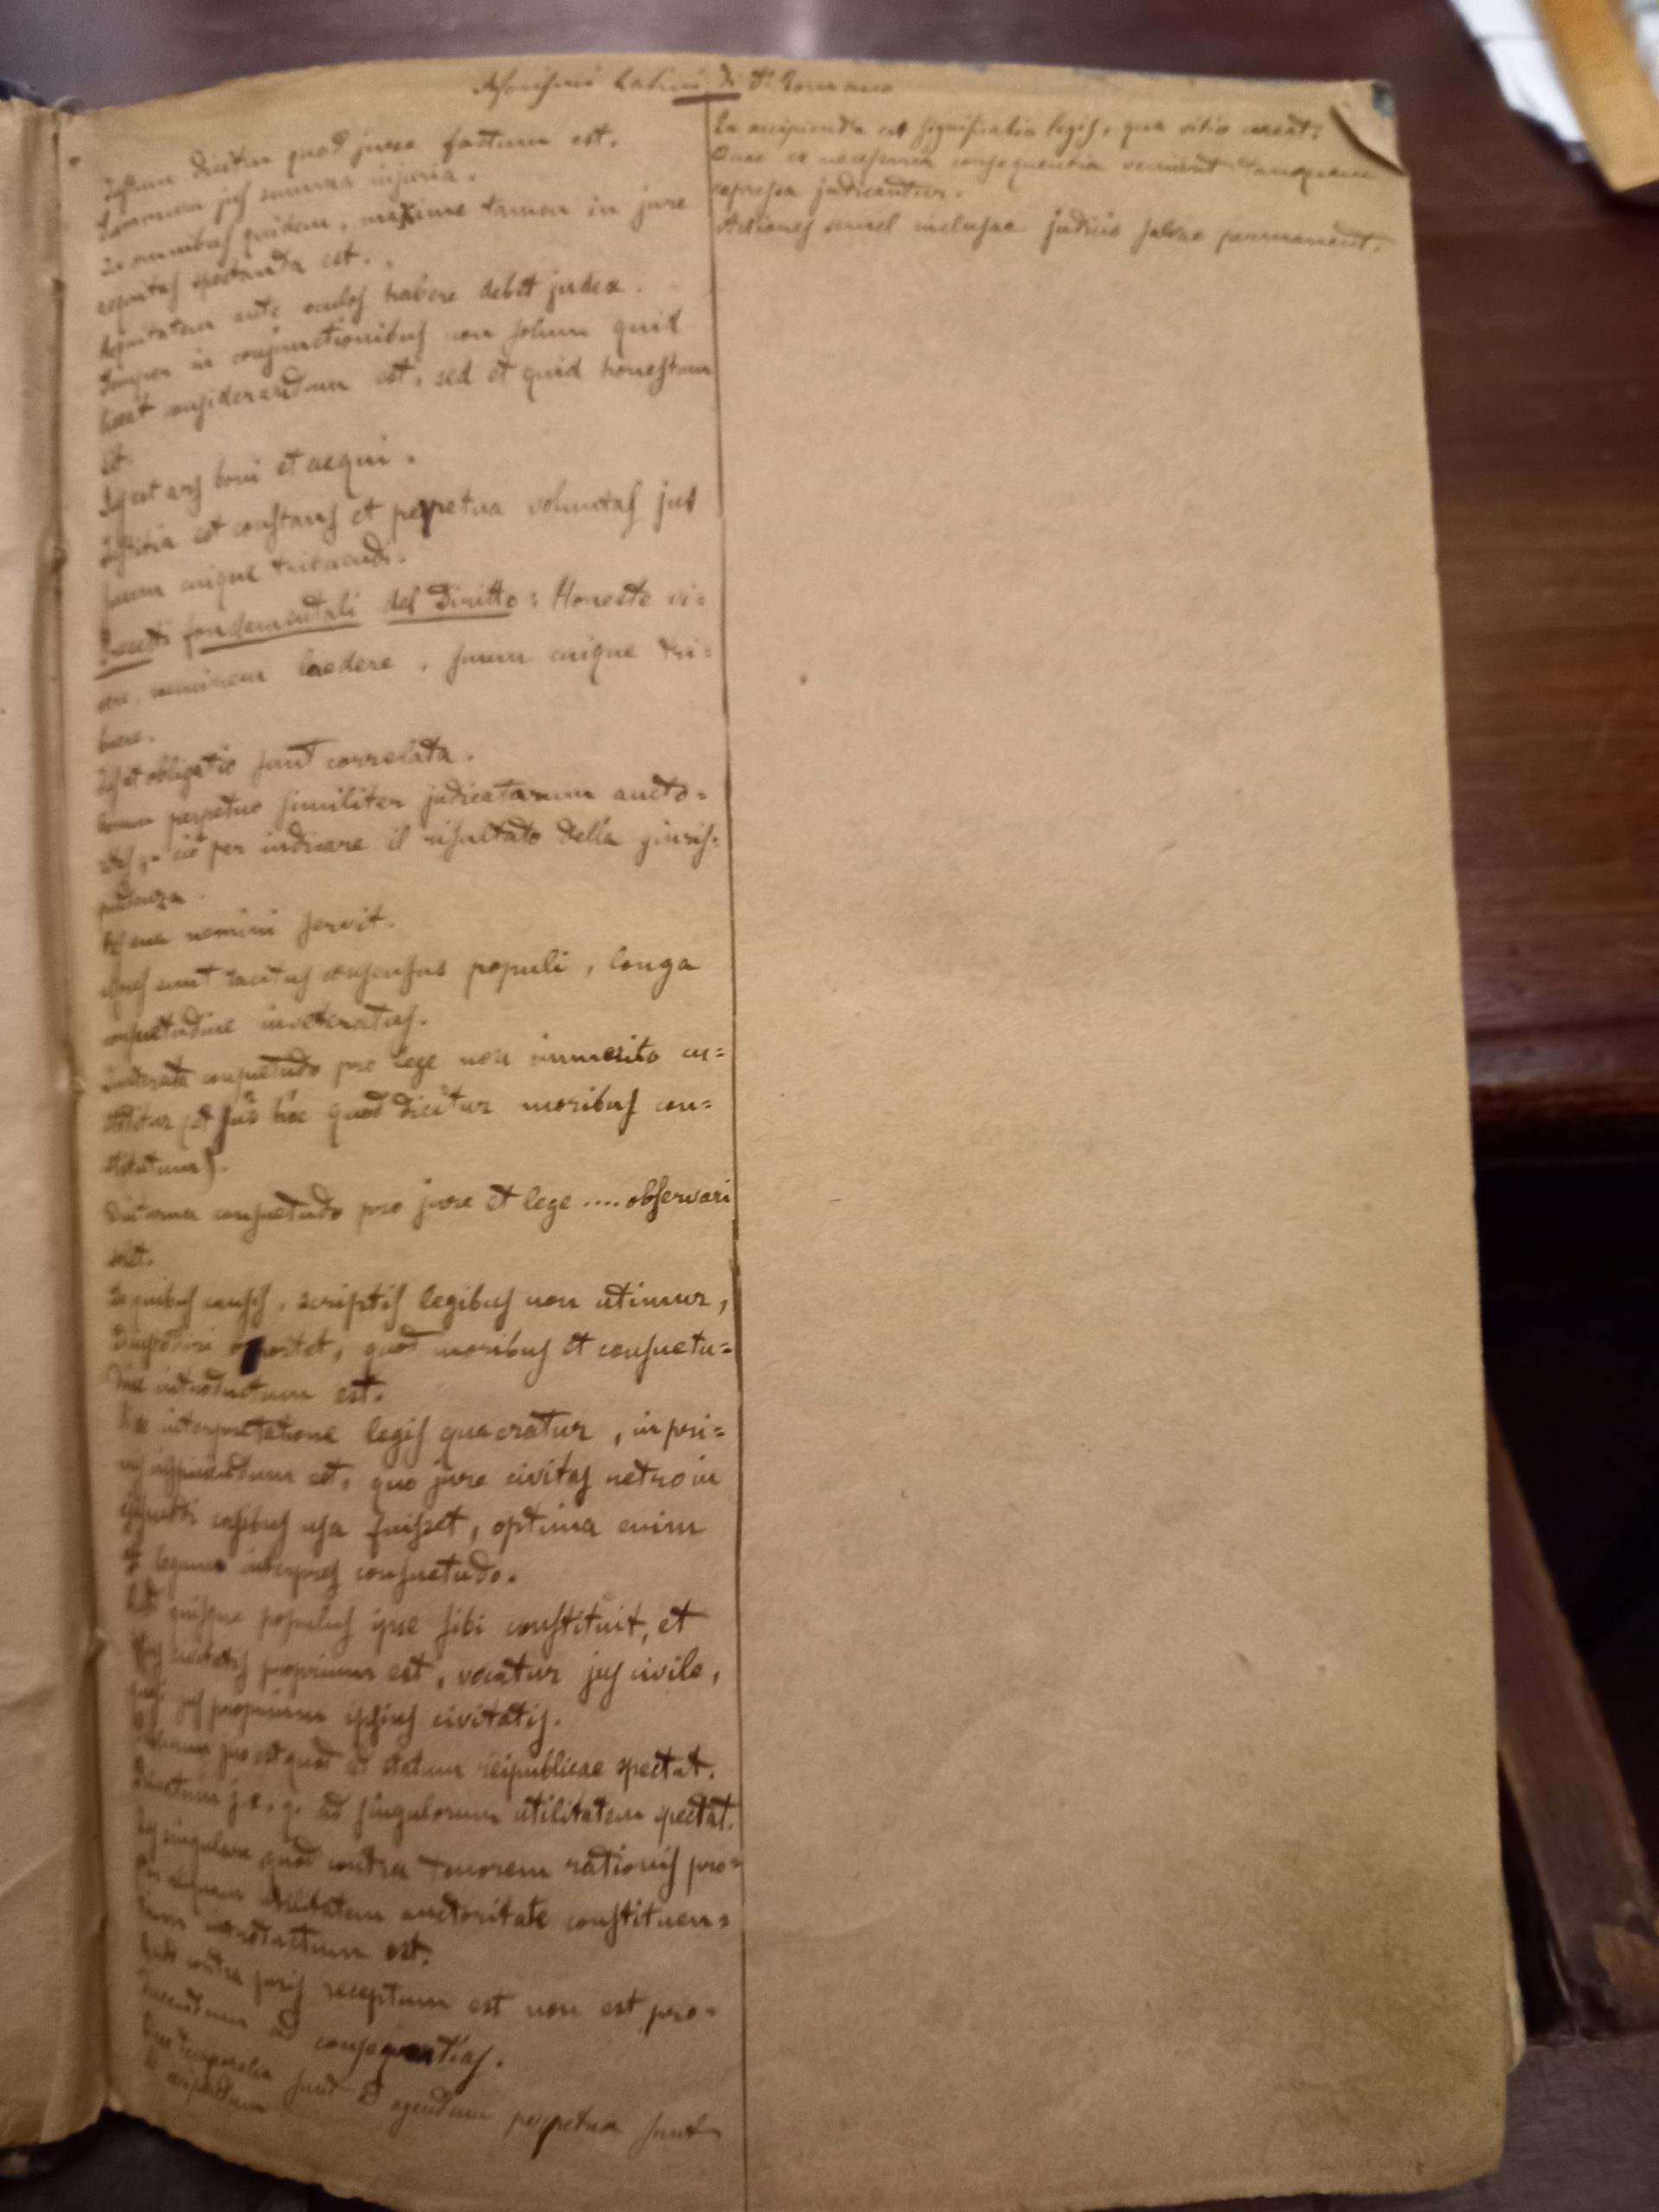 Aforismi Latini di D.º Romano
Justum dicitur quod jure factum est.
Summum jus summa injuria.
In omnibus quidem, maxime tamen in jure
aequitas spectanda est.
Aequitatem ante oculos habere debet judex.
Semper in conjunctionibus non solum quid
liceat considerandum est, sed et quid honestum
sit.
Jus est ars boni et aequi.
Justitia est constans et perpetua voluntas jus
suum cuique tribuendi.
Precetti fondamentali del Diritto: Honeste vi=
vere, neminem laedere, suum cuique tri=
buere.
Jus et obligatio sunt correlata.
Rerum perpetuo similiter judicatarum aucto=
ritas, e ciò per indicare il risultato della giuris=
prudenza.
Res sua nemini servit.
Mores sunt tacitus consensus populi, longa
consuetudine inveteratus.
Inveterata consuetudo pro lege non immerito cu=
stoditur (et jus hoc quod dicitur moribus con=
stitutum).
Diuturna consuetudo pro jure et lege .... observari
solet.
In quibus causis, scriptis legibus non utimur,
custodiri oportet, quod moribus et consuetu=
dine introductum est.
Si de interpretatione legis quaeratur, in pri=
mis inspiciendum est, quo jure civitas retro in
ejusmodi casibus usa fuisset, optima enim
est legum interpres consuetudo.
Quod quisque populus ipse sibi constituit, et
ipsius civitatis proprium est, vocatur jus civile,
quasi jus proprium ipsius civitatis.
Publicum jus est quod ad statum reipublicae spectat.
Privatum j. e. q. ad singulorum utilitatem spectat.
Jus singulare, quod contra tenorem rationis pro=
pter aliquam utilitatem auctoritate constituen=
tium introductum est.
Quod contra juris receptum est non est pro=
ducendum ad consequentias.
Quae temporalia sunt ad agendum perpetua sunt
ad excipiendum
Ea accipienda est significatio legis, quae vitio careat.
Quae ex necessaria consequentia veniunt tamquam
expressa judicantur.
Actiones semel inclusae judicio salvae permanent.